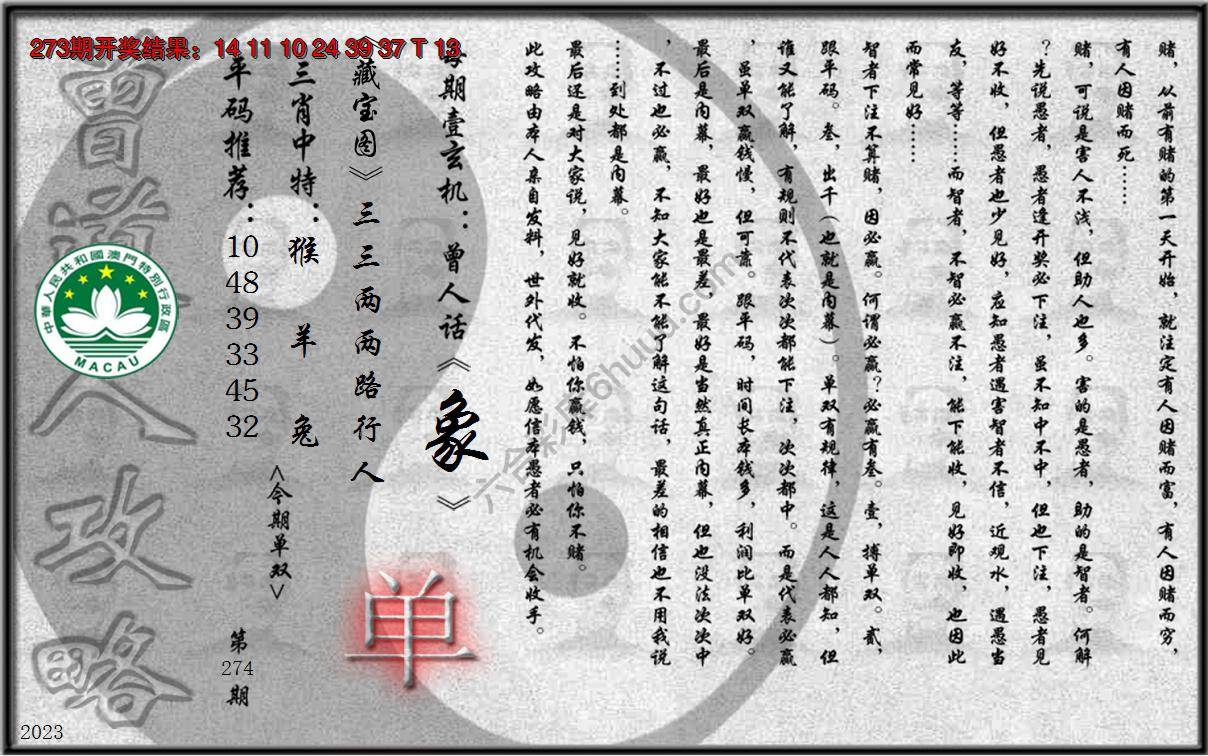 273期开奖结果：14 11 10 24 39 37 T 13
赌，从前有赌的第一天开始，就注定有人因赌而富，有人因赌而穷，
有人因赌而死……
赌，可说是害人不浅，但助人也多。害的是愚者，助的是智者。何解
？先说愚者，愚者逢开奖必下注，虽不知中不中，但也下注，愚者见
好不收，但愚者也少见好，应知愚者遇害智者不信，近观水，遇愚当
友，等等……而智者，不智必赢不注，能下能收，见好即收，也因此
而常见好……
智者下注不算赌，因必赢。何谓必赢？必赢有叁。壹，搏单双。贰，
跟平码。叁，出千（也就是内幕）。单双有规律，这是人人都知，但
谁又能了解，有规则不代表次次都能下注，次次都中。而是代表必赢
，虽单双赢钱慢，但可靠。跟平码，时间长本钱多，利润比单双好。
最后是内幕，最好也是最差，最好是当然真正内幕，但也没法次次中
，不过也必赢，不知大家能不能了解这句话，最差的相信也不用我说
……到处都是内幕。
最后还是对大家说，见好就收。不怕你赢钱，只怕你不赌。
此攻略由本人亲自发料，世外代发，如愿信本愚者必有机会收手。
每期壹玄机：曾人话《象》
《藏宝图》三三两两路行人
单
三肖中特：猴 羊 兔
<今期单双>
平码推荐：
10
48
39
33
45
32
第
274
期
曾道人攻略
中華人民共和國澳門特別行政區
MACAU
2023